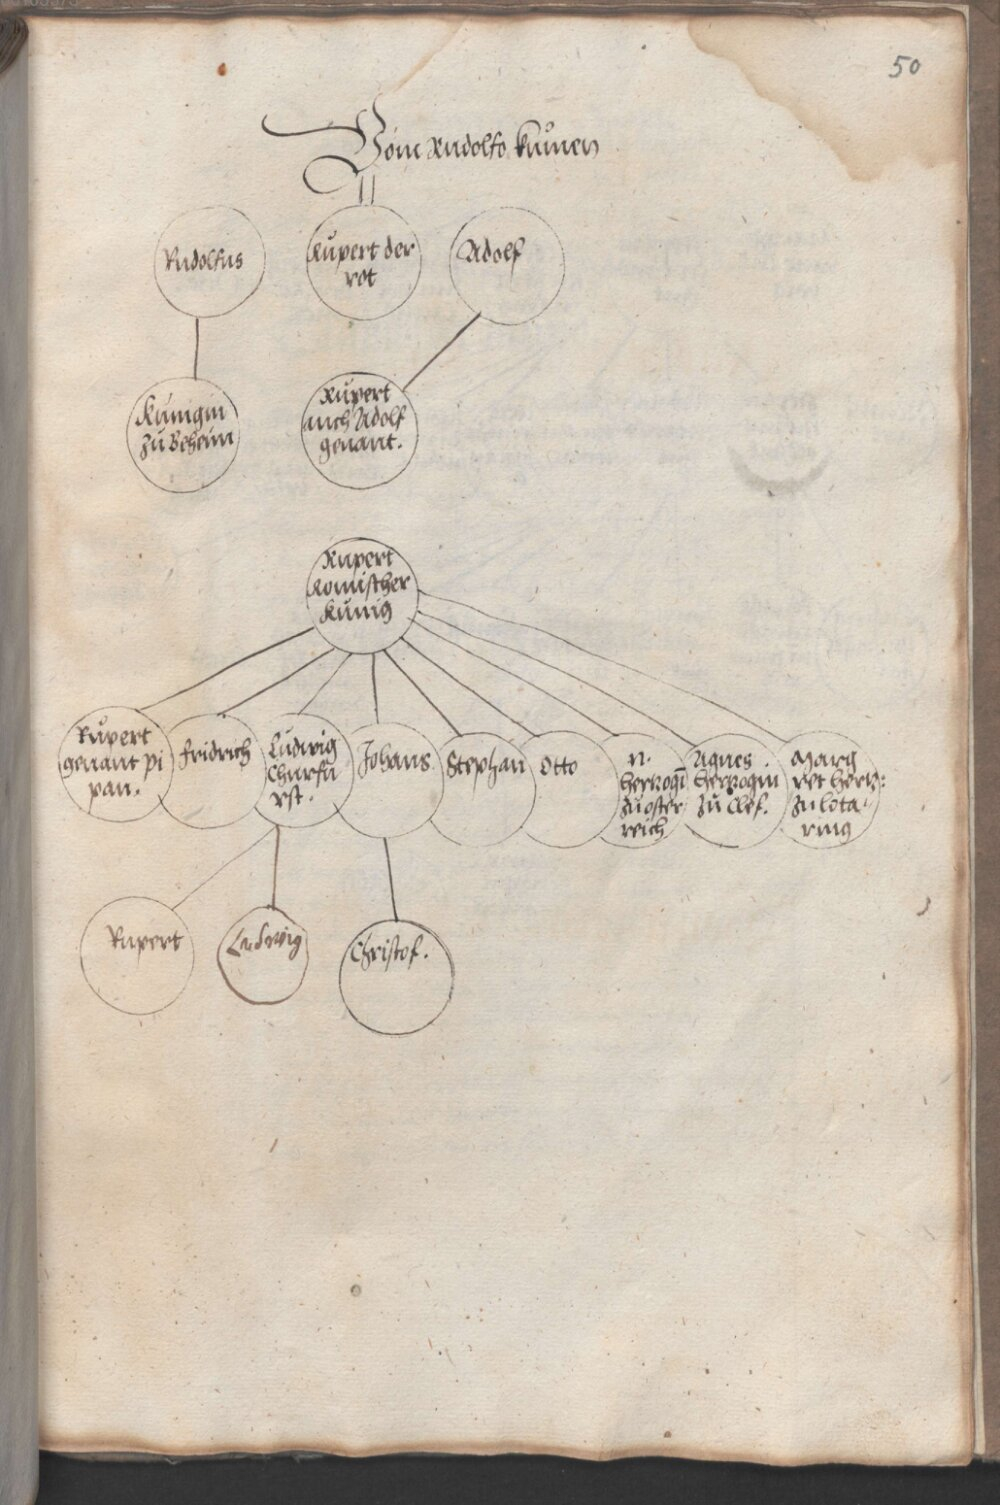 50
Vom Rudolfo kumen
Rudolfus
Rupert der
rot
Adolf
Kunigin
zu Beheim
Rupert
auch Adolf
genant.
Rupert
Romischer
Kunig
Rupert
genant pi
pan.
Fridrich
Ludwig
Churfu
rst.
Johans
Stephan
Otto
n.
hertzogi
zu oster
reich
Agnes.
Hertzogin
zu Clef.
Marg
ret hertz:
zu lota-
ring
Rupert
Ludwig
Christof.